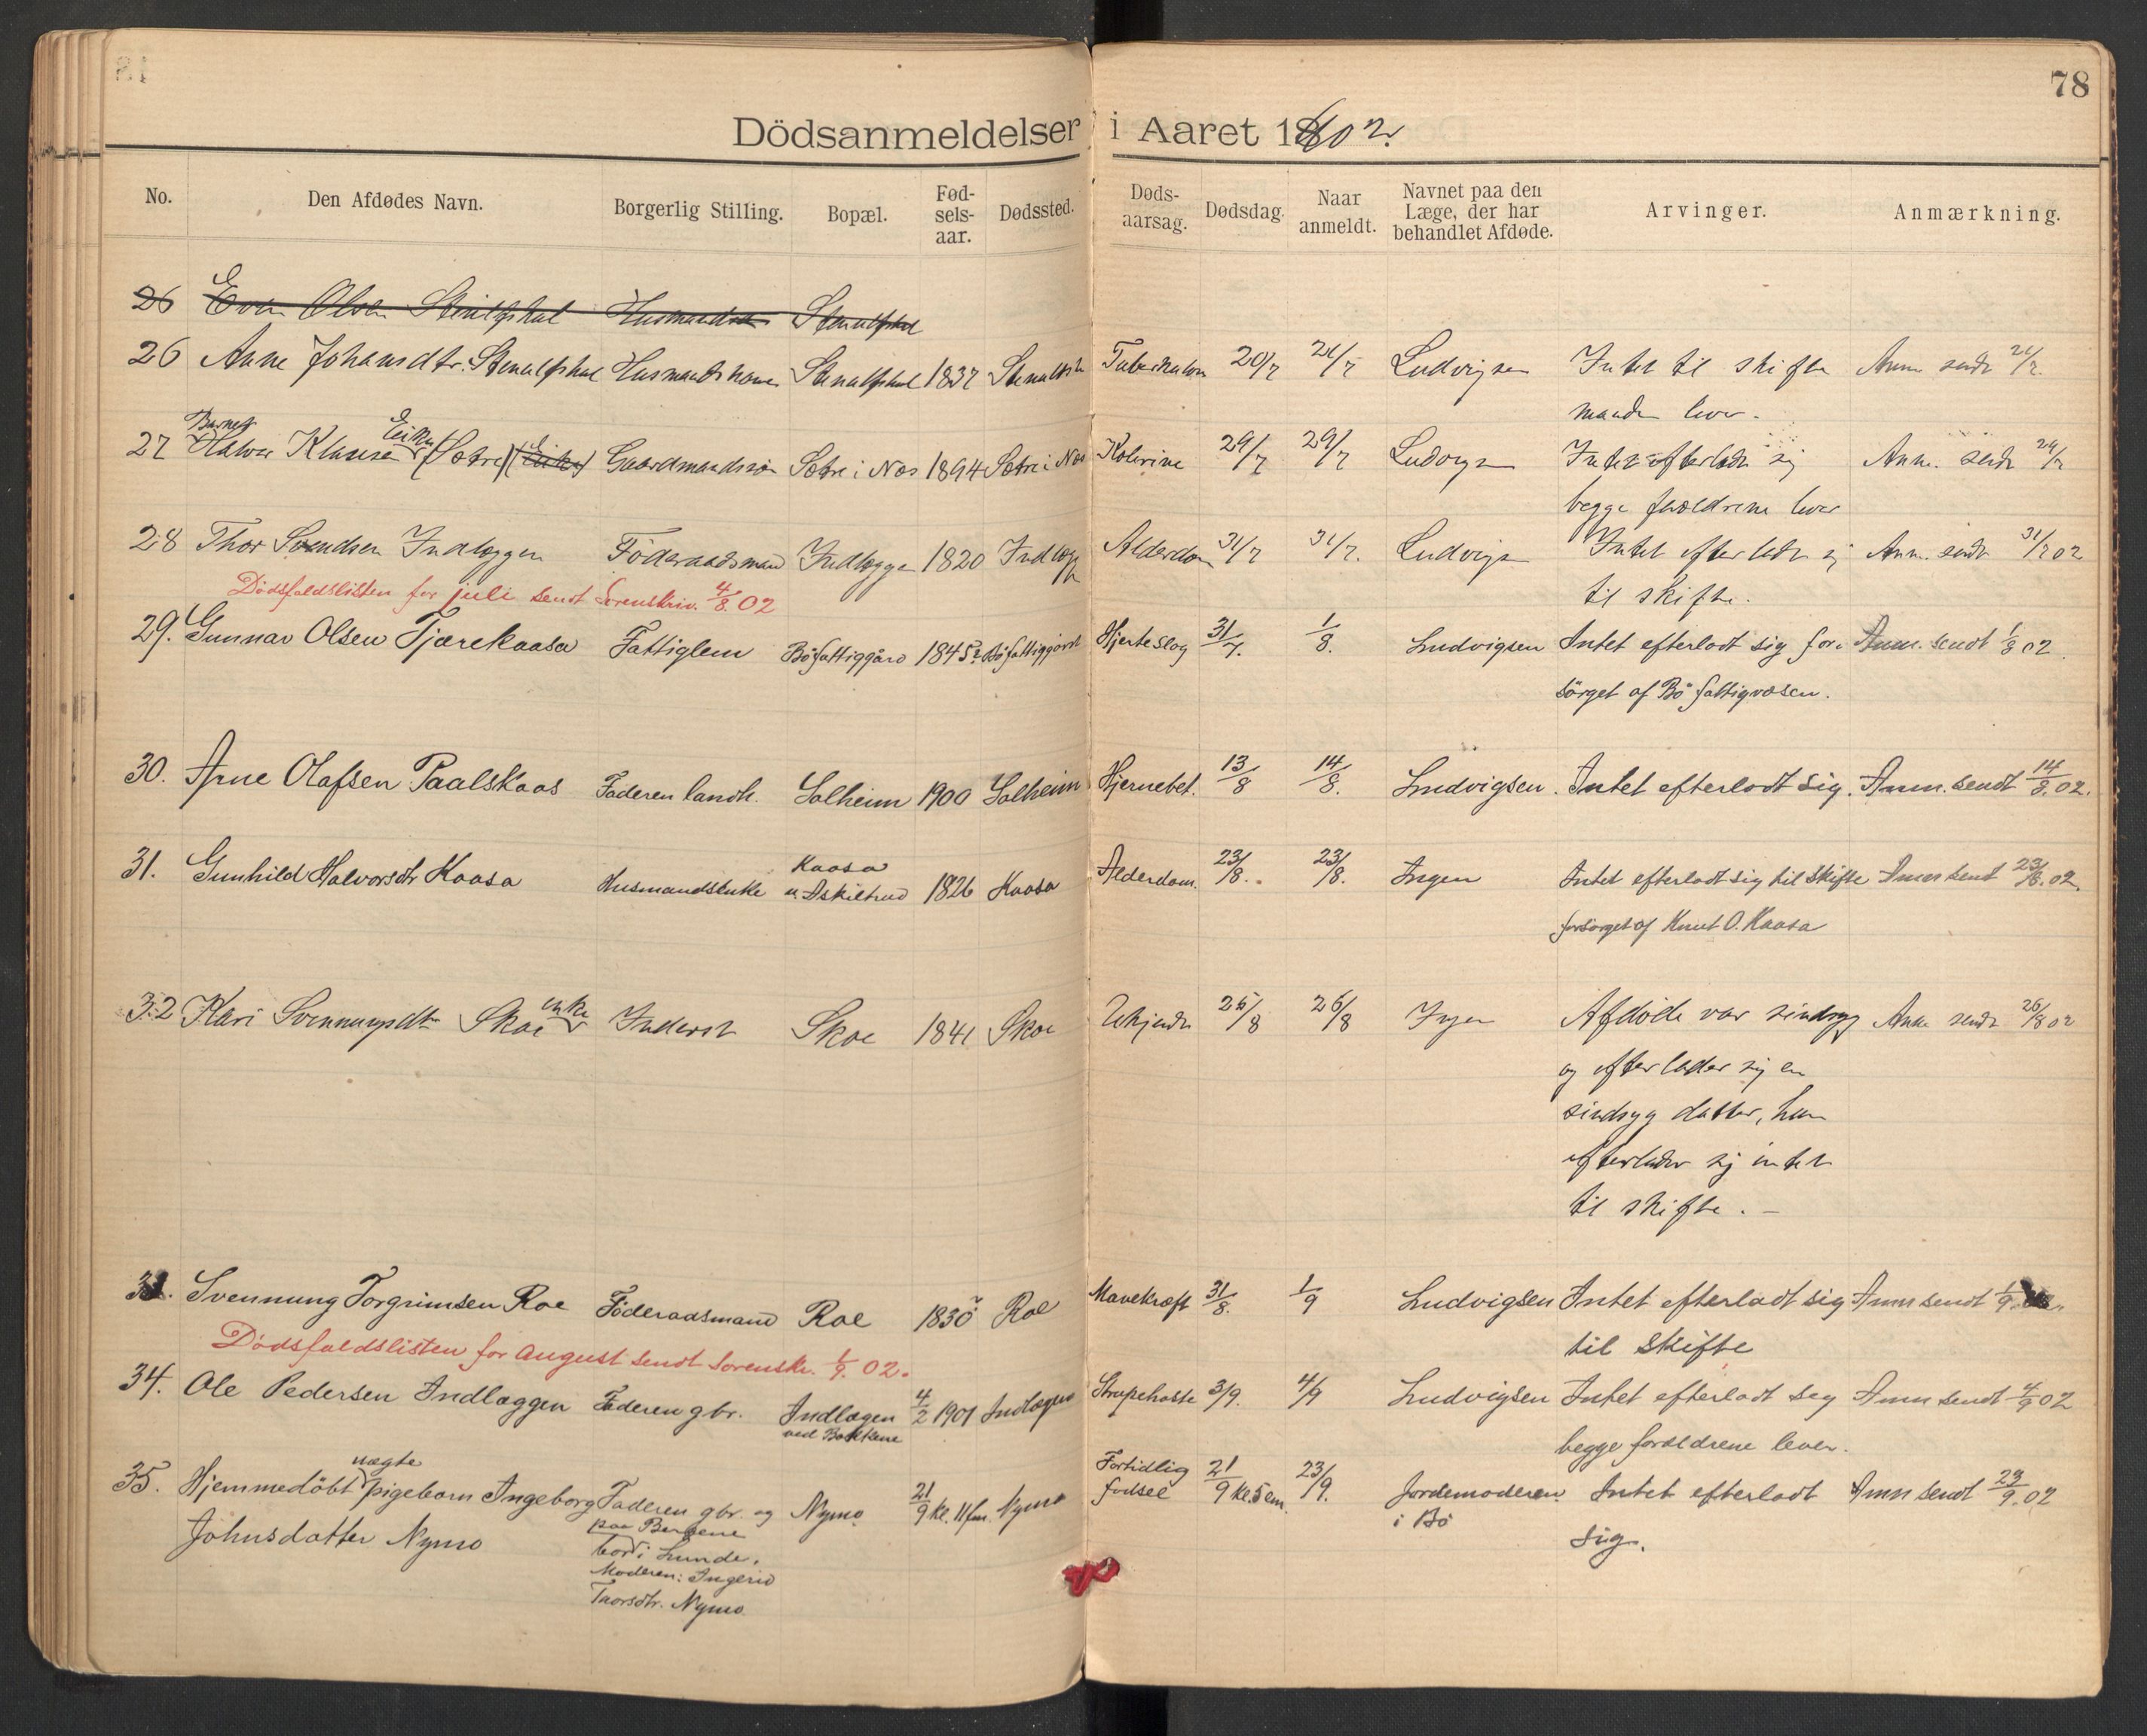 78
Dödsanmeldelser i Aaret 1902.
No. Den Afdødes Navn. Borgerlig Stilling. Bopæl. Fød- sels- aar. Dødssted. Døds- aarsag. Dødsdag. Naar anmeldt. Navnet paa den Læge, der har behandlet Afdøde. Arvinger. Anmærkning.
26 Even Olsen
26 Anne Johansdtr. Stenulfshul Husmandskone Stenulfshul 1837 20/7 21/7 Ludvigsen Intet til skifte Anm sendt 21/7.
manden lever.
Barnet Eika
27 Halvor Klausen (Sætre) (Eika) Gaardmandssøn Sætre i Nes 1894 Sætre i Nes Kolerine 29/7 29/7 Ludvigsen Intet efterladt sig Anm. sendt 29/7
begge forældrene lever
28 Thor Svendsen Indlæggen Föderaadsmand Indlæggen 1820 Indlægg Alderdom 31/7 31/7. Ludvigsen Intet efterladt sig Anm. sendt 31/7 02
til skifte.
Dödsfaldslisten for juli sendt Sorenskriv. 4/8. 02
29. Gunnar Olsen Tjærekaasa Fattiglem Böfattiggård 1845 Böfattiggård Hjerteslag 31/7. 1/8. Ludvigsen Intet efterladt sig for- Anm. sendt 1/8 02.
sörget af Bö fattigvæsen.
30. Arne Olafsen Paalskaas Faderen landh. Solheim 1900 Solheim Hjernebet. 13/8 14/8. Ludvigsen. Intet efterladt sig. Anm. sendt 14/8. 02.
31. Gunhild Halvorsdtr Kaasa Husmandsenke Kaasa u. Askiltrud 1826 Kaasa Alderdom. 23/8. 23/8. Ingen Intet efterladt sig til skifte Anm sendt 23/8. 02.
forsörget af Knut O. Kaasa
32 Kari Svennungsdtr Skoe enke Inderst Skoe 1841 Skoe Ukjendt 25/8 26/8 Ingen Afdöde var sindsyg Anm sendt 26/8 02
og efterlader sig en
sindsyg datter, hun
efterlader sig intet
til skifte. –
33. Svennung Torgrimsen Roe Föderaadsmand Roe 1830 Roe Mavekræft 31/8. 1/9 Ludvigsen Intet efterladt sig Anm sendt 1/9
til skifte
Dödsfaldslisten for august sendt sorenskr. 1/9. 02.
34. Ole Pedersen Indlæggen Faderen gbr. Indlægen ved Bakkene 4/2 1901 Indlægen Strupehoste 3/9. 4/9 Ludvigsen Intet efterladt sig Anm sendt 4/9 02
begge forældrene lever.
35. Hjemmedöbt uægte pigebarn Ingeborg Faderen gbr. og Nymo 21/9 kl. 11 fm. Nymo Fortidlig födsel 21/9 kl. 5 em. 23/9. Jordemoderen i Bö Intet efterladt Anm sendt 23/9. 02
Johnsdatter Nymo paa Bergene
bord i Lunde. sig.
Moderen: Ingerid
Taorsdtr. Nymo